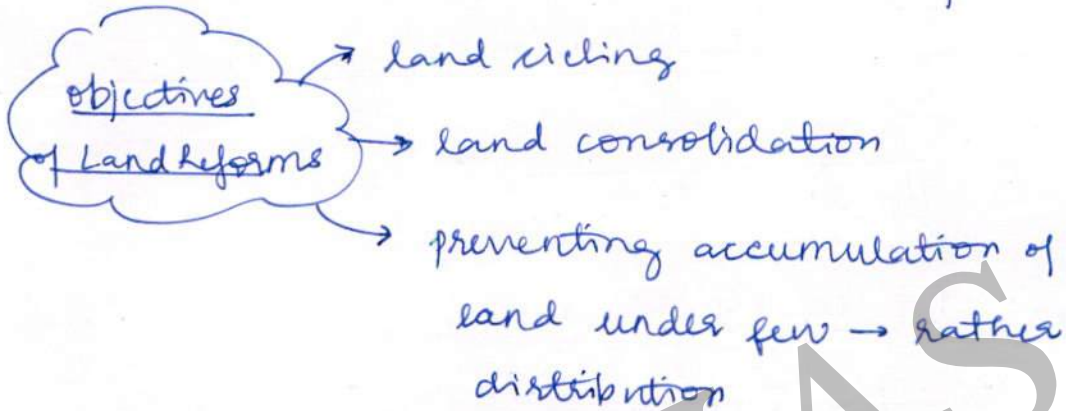 objectives
of Land Reforms
→ land cieling
→ land consolidation
→ preventing accumulation of
land under few → rather
distribution